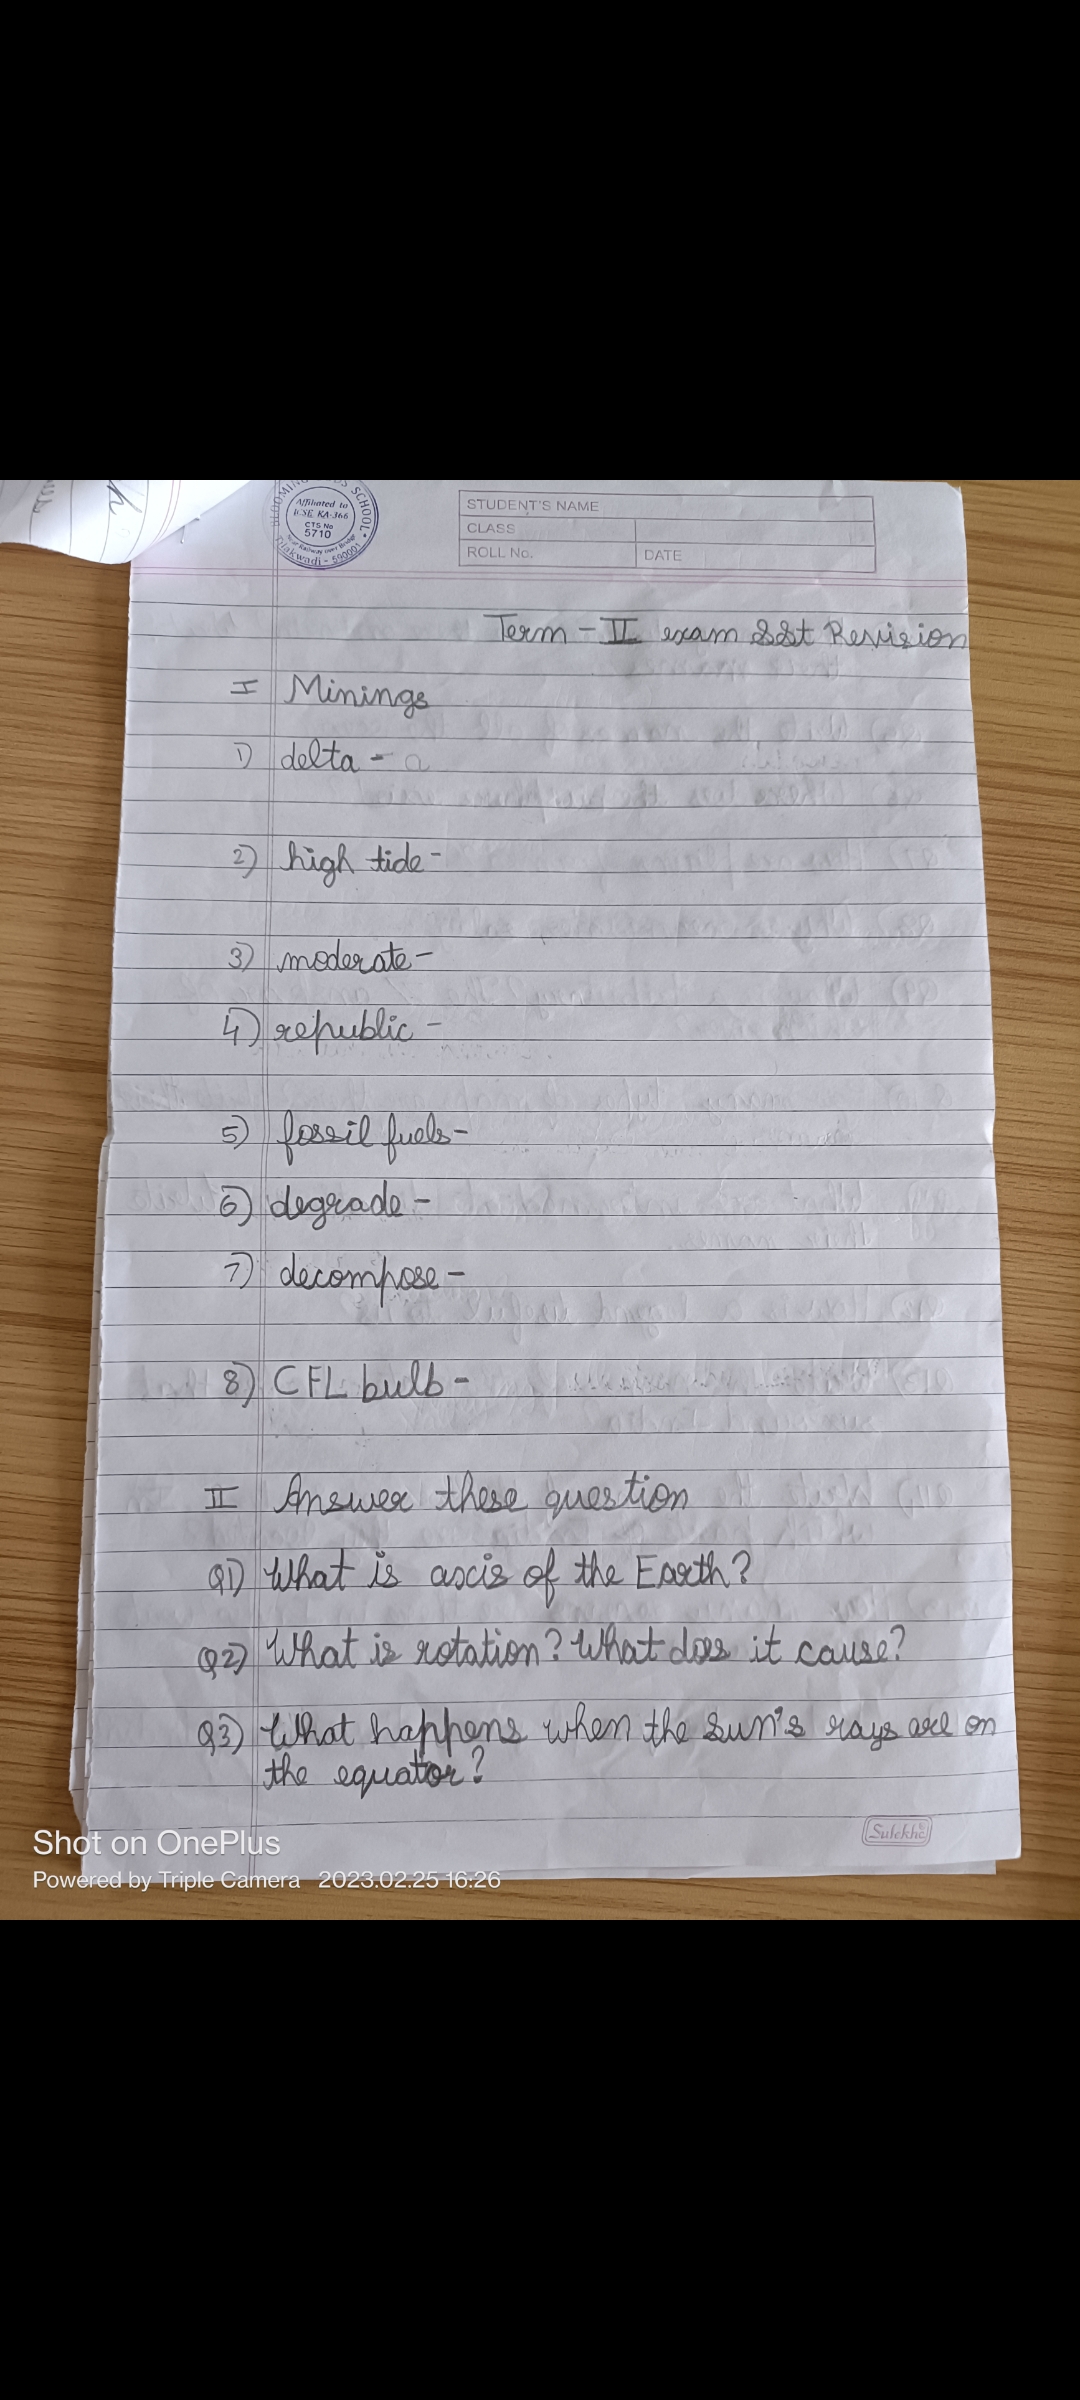 BLOOMING BUDS SCHOOL
Affiliated to
KA-366
CTS No
5710
Tilakwadi - 590001
STUDENT'S NAME
CLASS
ROLL No.
DATE
Term - II exam SSt Revision
I Minings
1) delta - a
2) high tide -
3) moderate -
4) republic -
5) fossil fuels -
6) degrade -
7) decompose -
8) CFL bulb -
II Answer these question
Q1) What is axis of the Earth?
Q2) What is rotation? What does it cause?
Q3) What happens when the sun's rays are on
the equator?
Sulekha
Shot on OnePlus
Powered by Triple Camera 2023.02.25 16:26